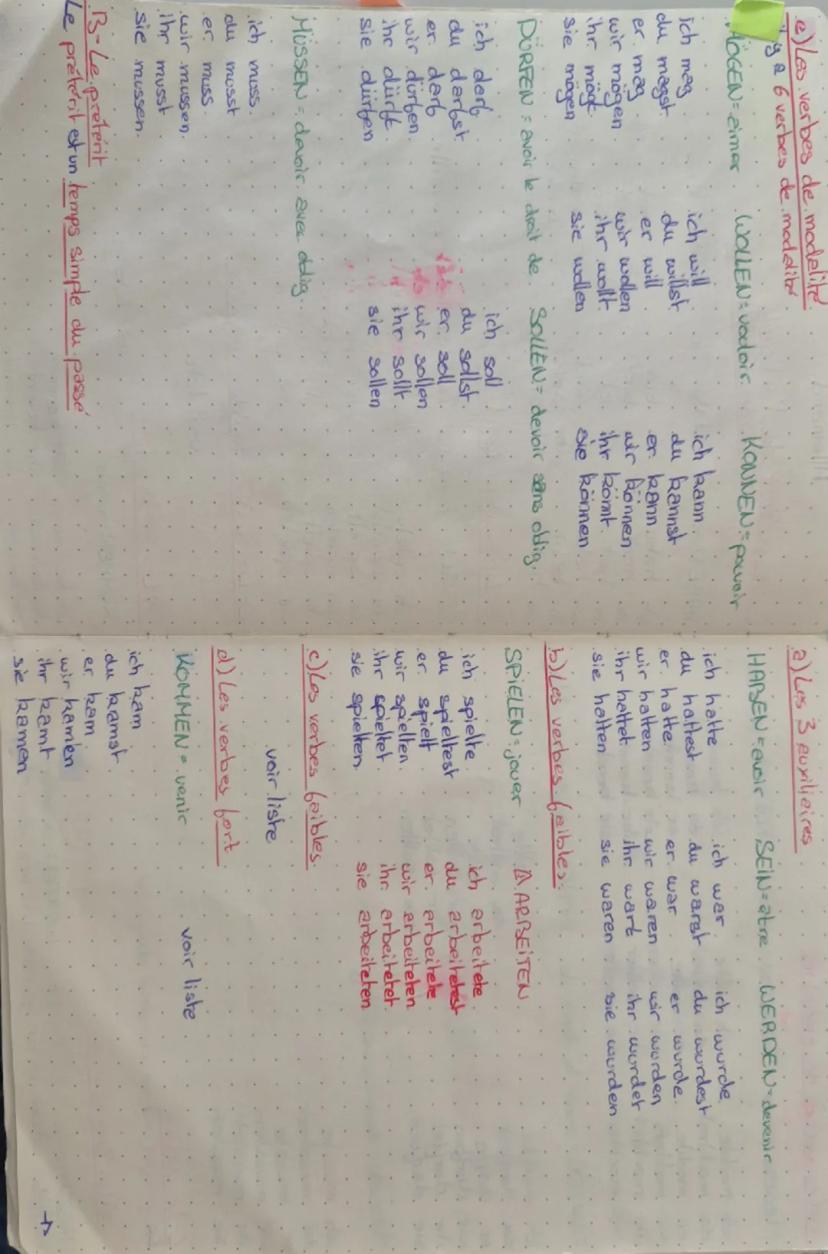 e) Les verbes de modalité
y a 6 verbes de modalité
MÖGEN = aimer
WOLLEN = vouloir
KÖNNEN = pouvoir
ich mag
du magst
er mag
wir mögen
ihr mögt
sie mögen
ich will
du willst
er will
wir wollen
ihr wollt
sie wollen
ich kann
du kannst
er kann
wir können
ihr könnt
sie können
DÜRFEN = avoir le droit de
SOLLEN = devoir sans oblig.
ich darf
du darfst
er darf
wir dürfen
ihr dürft
sie dürfen
ich soll
du sollst
er soll
wir sollen
ihr sollt
sie sollen
MÜSSEN = devoir avec oblig.
ich muss
du musst
er muss
wir mussen
ihr musst
sie mussen
B- Le prétérit
Le prétérit est un temps simple du passé
a) Les 3 auxiliaires
HABEN = avoir
SEIN = être
WERDEN = devenir
ich hatte
du hattest
er hatte
wir hatten
ihr hattet
sie hatten
ich war
du warst
er war
wir waren
ihr wart
sie waren
ich wurde
du wurdest
er wurde
wir wurden
ihr wurdet
sie wurden
b) Les verbes faibles
SPIELEN = jouer
⚠ ARBEITEN
ich spielte
du spieltest
er spielt
wir spielten
ihr spieltet
sie spielten
ich arbeitete
du arbeitetest
er arbeitete
wir arbeiteten
ihr arbeitetet
sie arbeiteten
c) Les verbes faibles
voir liste
d) Les verbes fort
KOMMEN = venir
voir liste
ich kam
du kamst
er kam
wir kamen
ihr kamt
sie kamen